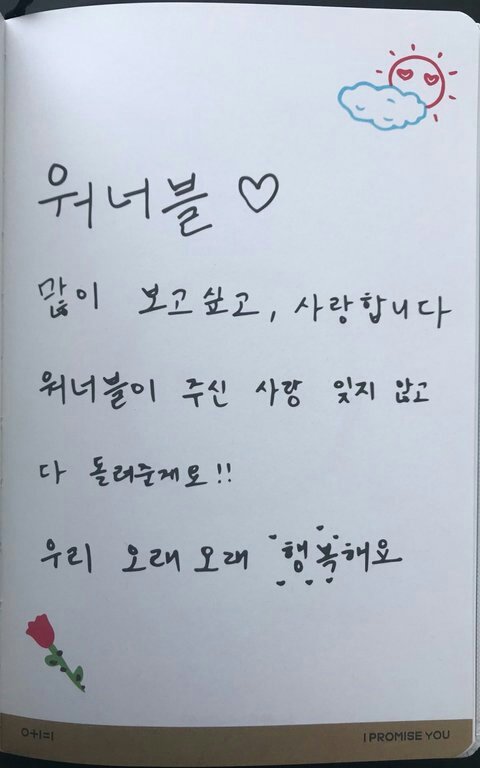 워너블 ♡
많이 보고싶고, 사랑합니다
워너블이 주신 사랑 잊지 않고
다 돌려줄게요!!
우리 오래오래 행복해요
0+1=1
I PROMISE YOU